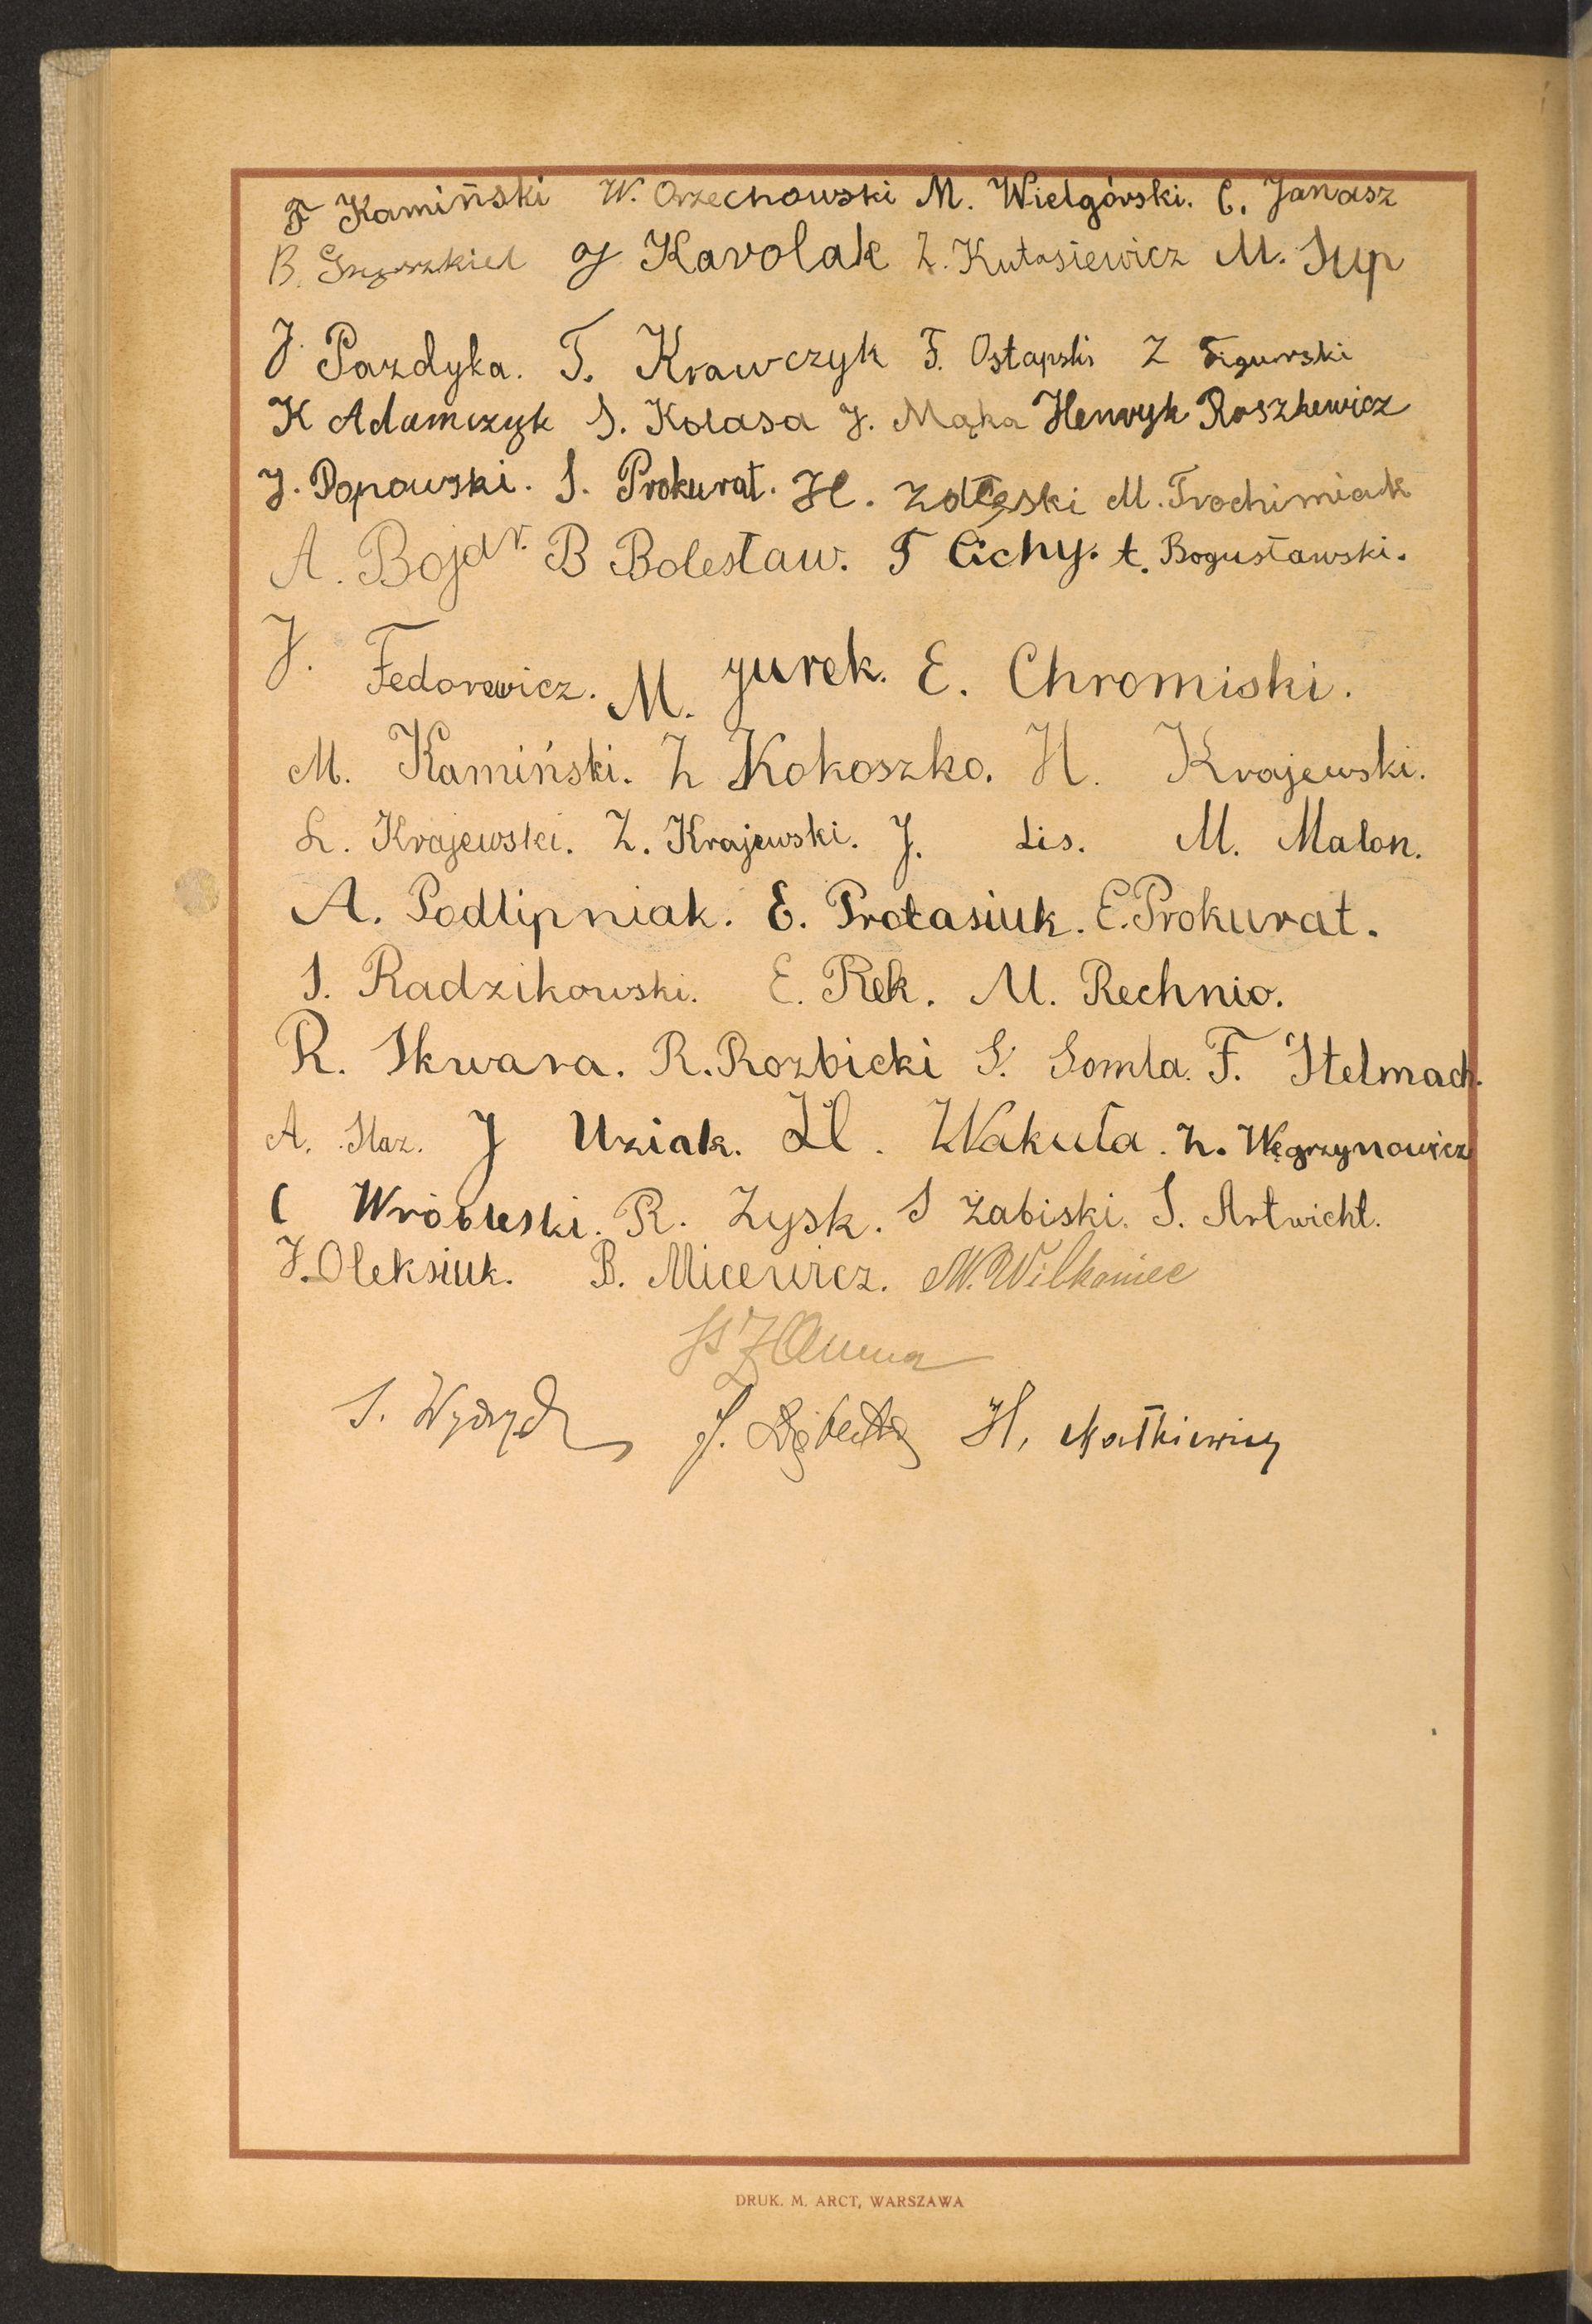 F Kamiński W. Orzechowski M. Wielgórski. C. Janasz
B. J. Karolak Z. Kutasiewicz M. Sup
J. Pazdyka. T. Krawczyk F. Ostapski Z Figurski
K Adamczyk S. Kolasa J. Mąka Henryk Roszkewicz
J. Popowski. S. Prokurat. H. Zdtęski M. Trochimiak
A. Bojar. B Bolesław. T Cichy. t. Bogusławski.
J. Fedorewicz. M. Jurek. E. Chromiski.
M. Kamiński. Z Kokoszko. H. Krajewski.
L. Krajewski. Z. Krajewski. J. Lis. M. Malon.
A. Podlipniak. E. Protasiuk. E. Prokurat.
S. Radzikowski. E. Rek. M. Rechnio.
R. Skwara. R. Rozbicki S. Somla. F. Stelmach.
A. Staz. J Uziak. H. Wakuła. Z. Węgrzynowicz
C Wróbleski. R. Zysk. S Żabiski. S. Artwicht.
J. Oleksiuk. B. Micewicz. M. Wilkoniec
S. J. H. Małkiewicz
DRUK. M. ARCT, WARSZAWA